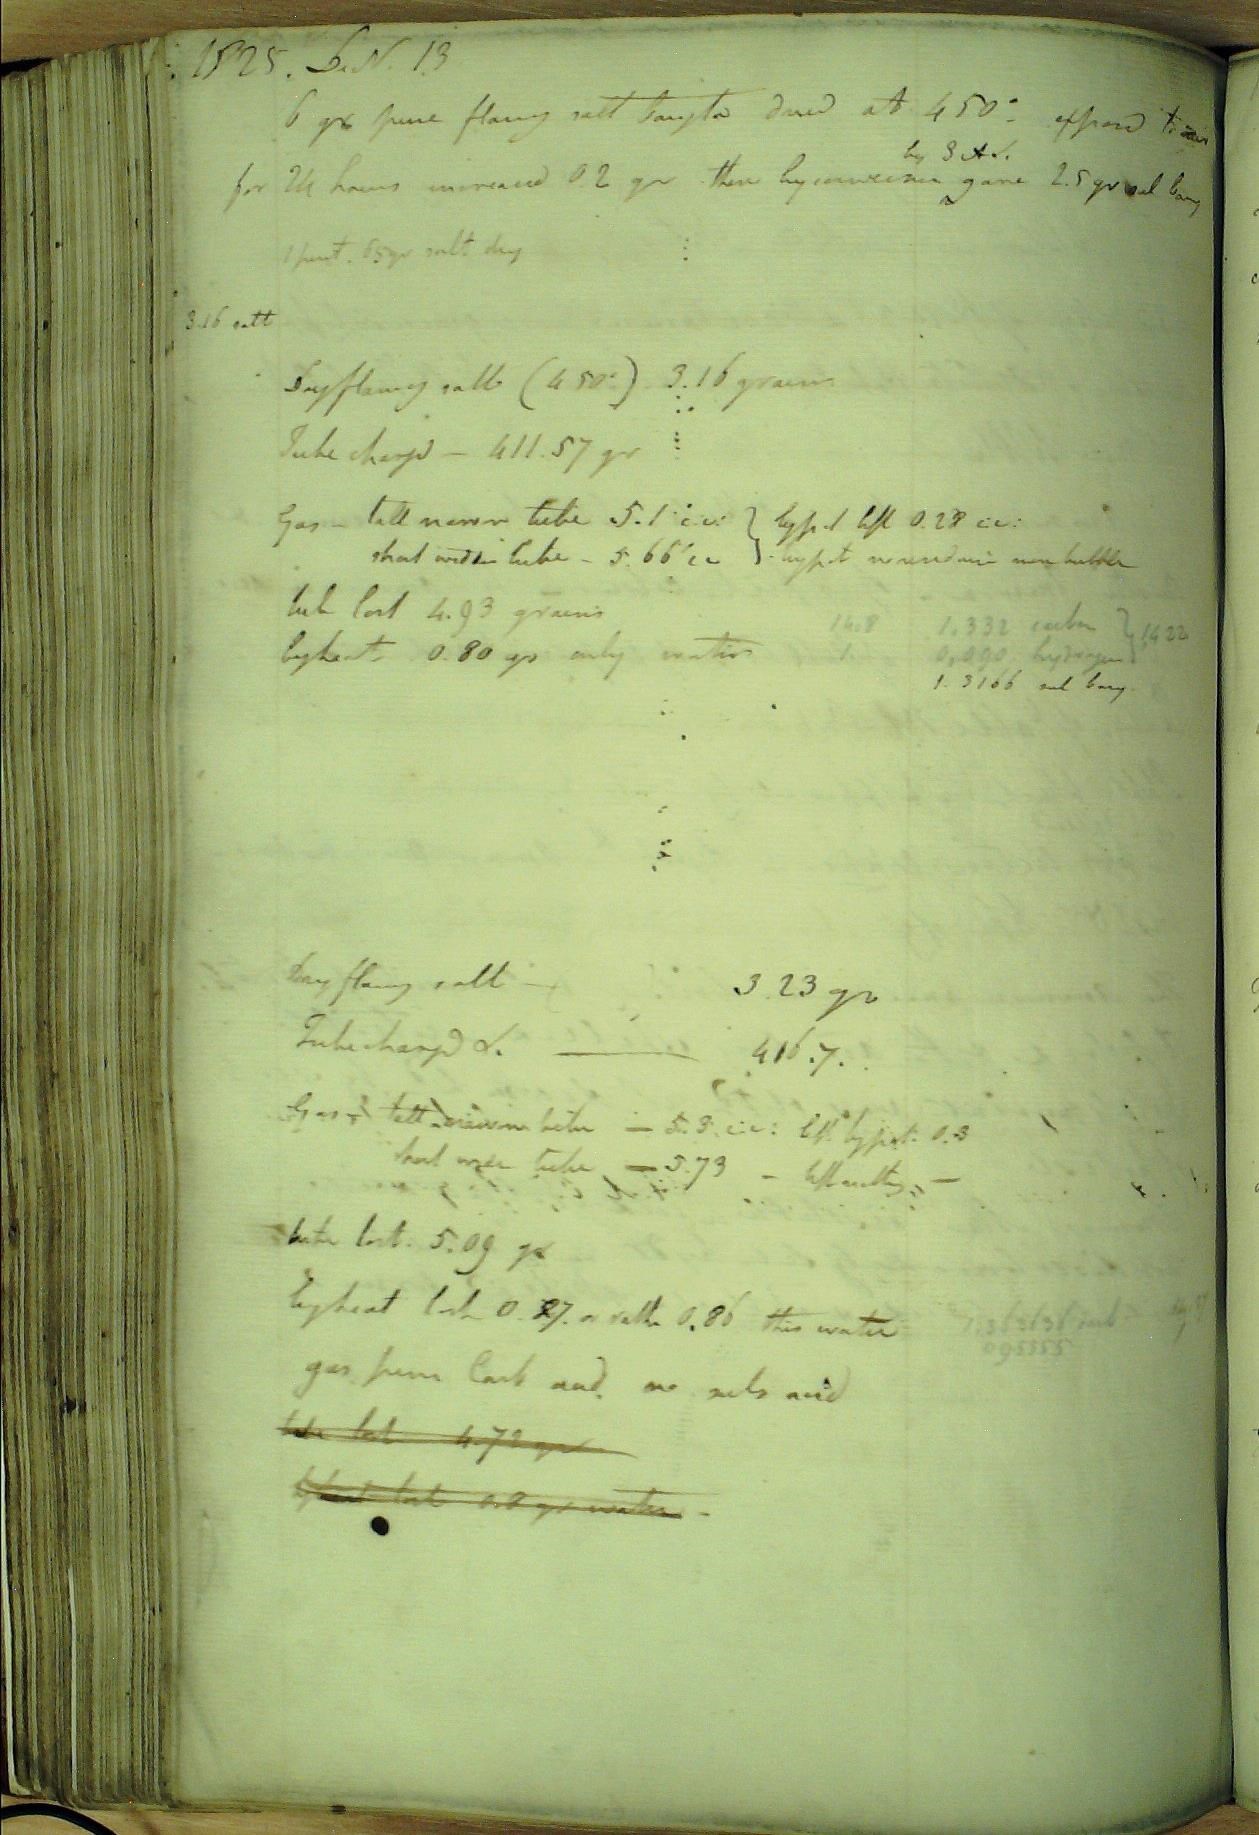 1825. Dec. 13
6 gr pure flamg salt baryta dried at 450° exposed to air
by S A &.
for 24 hours increased 0.2 gr then by conversion gave 2.5 gr sul bary
salt dry
3.16 salt
Dry flamg salt (450°) 3.16 grains
Tube chargd — 411.57 gr
Gas — tall narrow tube 5.1 c.i: } by pot left 0.28 c.i:
short wide tube - 5.66 ci } by pot no residuum mere bubble
tube lost 4.93 grains
by heat 0.80 gr only water
14.8 1.332 carbon } 1422
1 0.090 hydrogen
1.3166 sul bary
Dry flamg salt — 3.23 gr
Tube chargd &. — 416.7.
Gas - tall narrow tube — 5.3. c.i: left by pot. 0.3
short wide tube — 5.73 - left nothing —
tube lost. 5.09 gr
by heat lost 0.87. or rather 0.86 this water
gas pure Carb acid. no sulp acid
tube lost 4.72 gr
by heat lost 0.8 gr water -